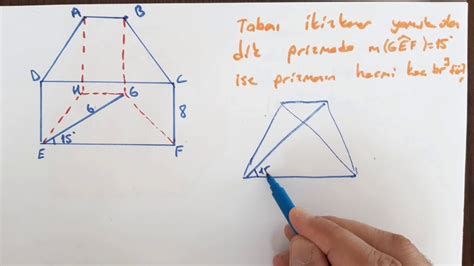 Tabanı ikizkenar yamuk olan
dik prizmada m(GÊF)=15°
ise prizmanın hacmi kaç br³ tür?
A
B
D
C
H
G
6
8
15°
E
F
15